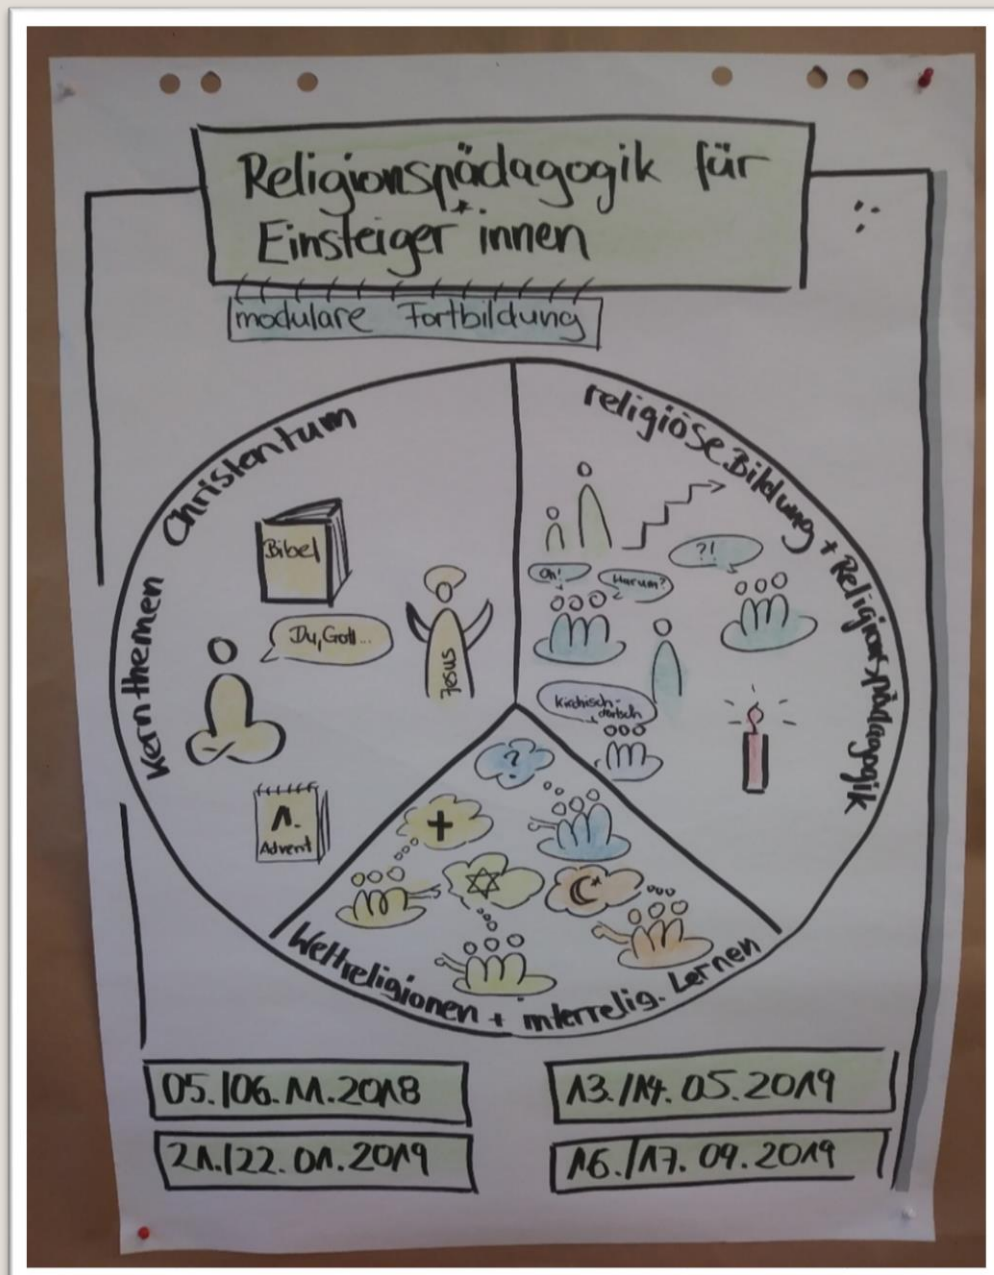 Religionspädagogik für
Einsteiger*innen
modulare Fortbildung
Kernthemen Christentum
Bibel
Du, Gott...
Jesus
1.
Advent
religiöse Bildung + Religionspädagogik
?!
Oh!
Warum?
Kirchisch-
deutsch
?
Weltreligionen + interrelig. Lernen
05./06.11.2018
13./14.05.2019
21./22.01.2019
16./17.09.2019